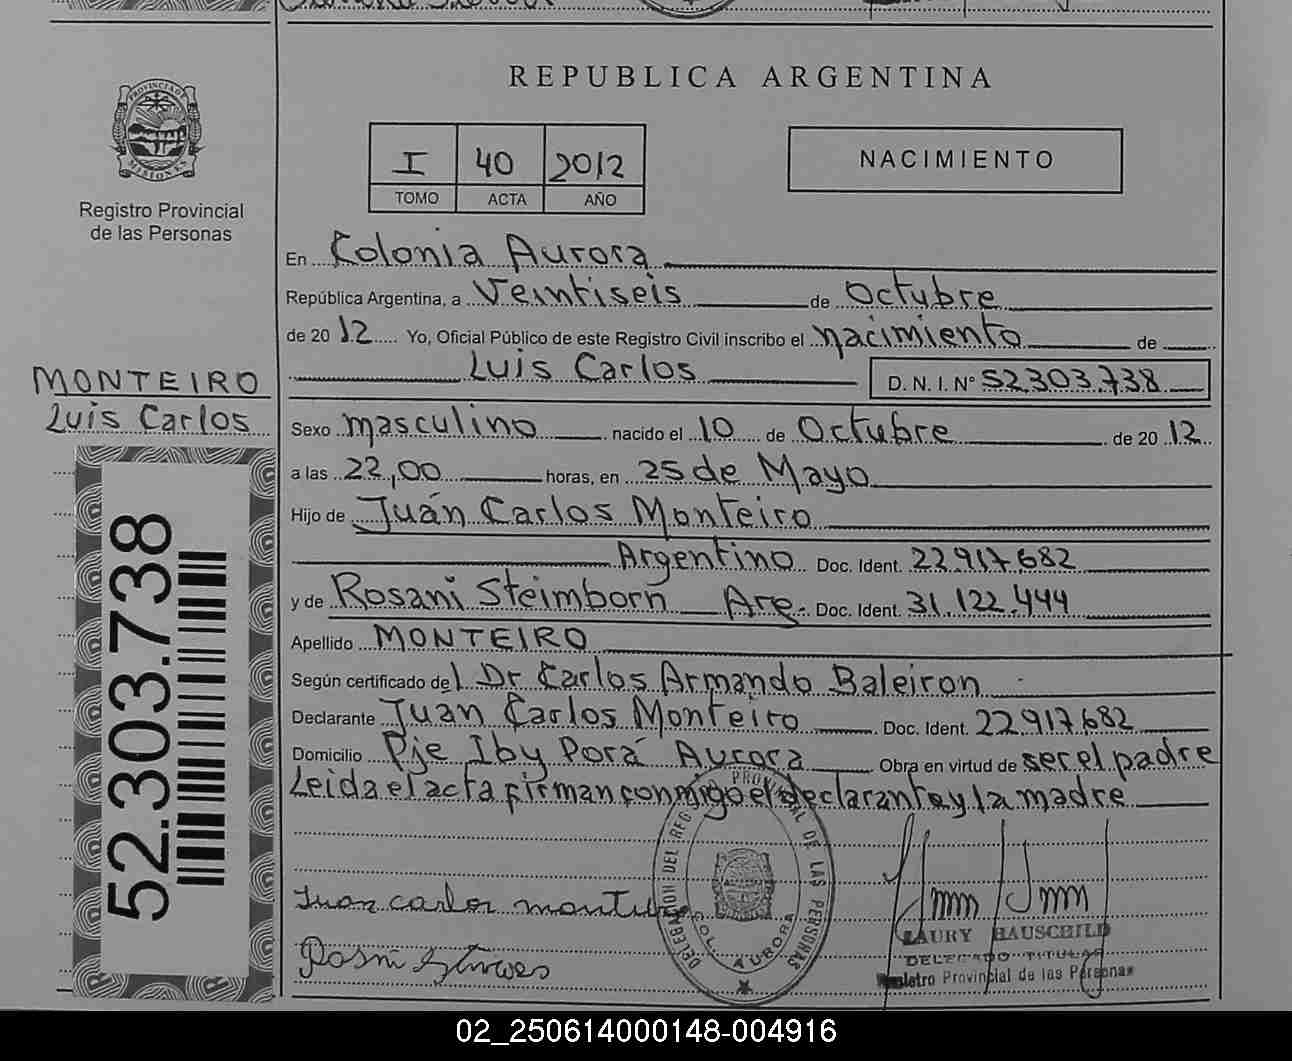 REPUBLICA ARGENTINA
PROVINCIA DE
MISIONES
Registro Provincial
de las Personas
I 40 2012
TOMO ACTA AÑO
NACIMIENTO
En Colonia Aurora
República Argentina, a Veintiseis de Octubre
de 2012 Yo, Oficial Público de este Registro Civil inscribo el nacimiento de
Luis Carlos D. N. I. N° 52.303.738
MONTEIRO
Luis Carlos
Sexo masculino nacido el 10 de Octubre de 2012
a las 22,00 horas, en 25 de Mayo
Hijo de Juán Carlos Monteiro
Argentino Doc. Ident. 22.917.682
y de Rosani Steimborn Arg. Doc. Ident. 31.122.444
Apellido MONTEIRO
Según certificado del Dr Carlos Armando Baleiron
Declarante Juan Carlos Monteiro Doc. Ident. 22.917.682
Domicilio Pje Iby Porá Aurora Obra en virtud de ser el padre
Leida el acta firman conmigo el declarante y la madre
52.303.738
Juan carlos
DELEGACION DEL REG PROVINCIAL DE LAS PERSONAS
COL. AURORA
LAURY HAUSCHILD
DELEGADO TITULAR
Registro Provincial de las Personas
02_250614000148-004916